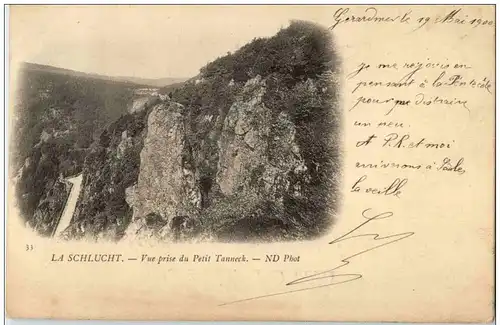 Gérardmer le 19 Mai 1900
je me réjouis en
pensant à la Pentecôte
pour me distraire
un peu.
A P.R. et moi
arriverons à
la veille
33
LA SCHLUCHT. — Vue prise du Petit Tanneck. — ND Phot